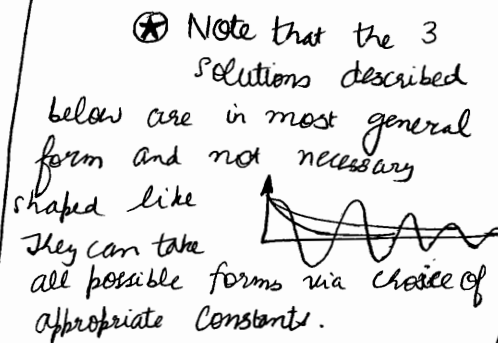 ⊛ Note that the 3
solutions described
below are in most general
form and not necessary
shaped like
They can take
all possible forms via choice of
appropriate constants.